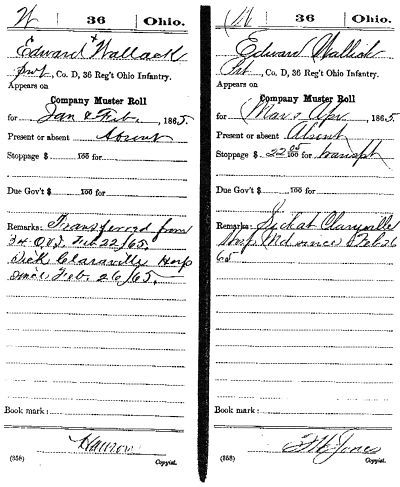 W | 36 | Ohio.
Edward Wallack
Pvt, Co. D, 36 Reg't Ohio Infantry.
Appears on
Company Muster Roll
for Jan & Feb., 1865.
Present or absent Absent
Stoppage $ 100 for
Due Gov't $ 100 for
Remarks: Transferred from
34 O.V.I. Feb 22/65.
Sick Claraville Hosp
since Feb. 26/65.
Book mark:
(358) Copyist.
W | 36 | Ohio.
Edward Wallick
Pvt, Co. D, 36 Reg't Ohio Infantry.
Appears on
Company Muster Roll
for Mar & Apr, 1865
Present or absent Absent
Stoppage $ 22 05/100 for transpt
Due Gov't $ 100 for
Remarks: Sick at Clarysville
Hosp. Md since Feb 26
65
Book mark:
Jones
(358) Copyist.